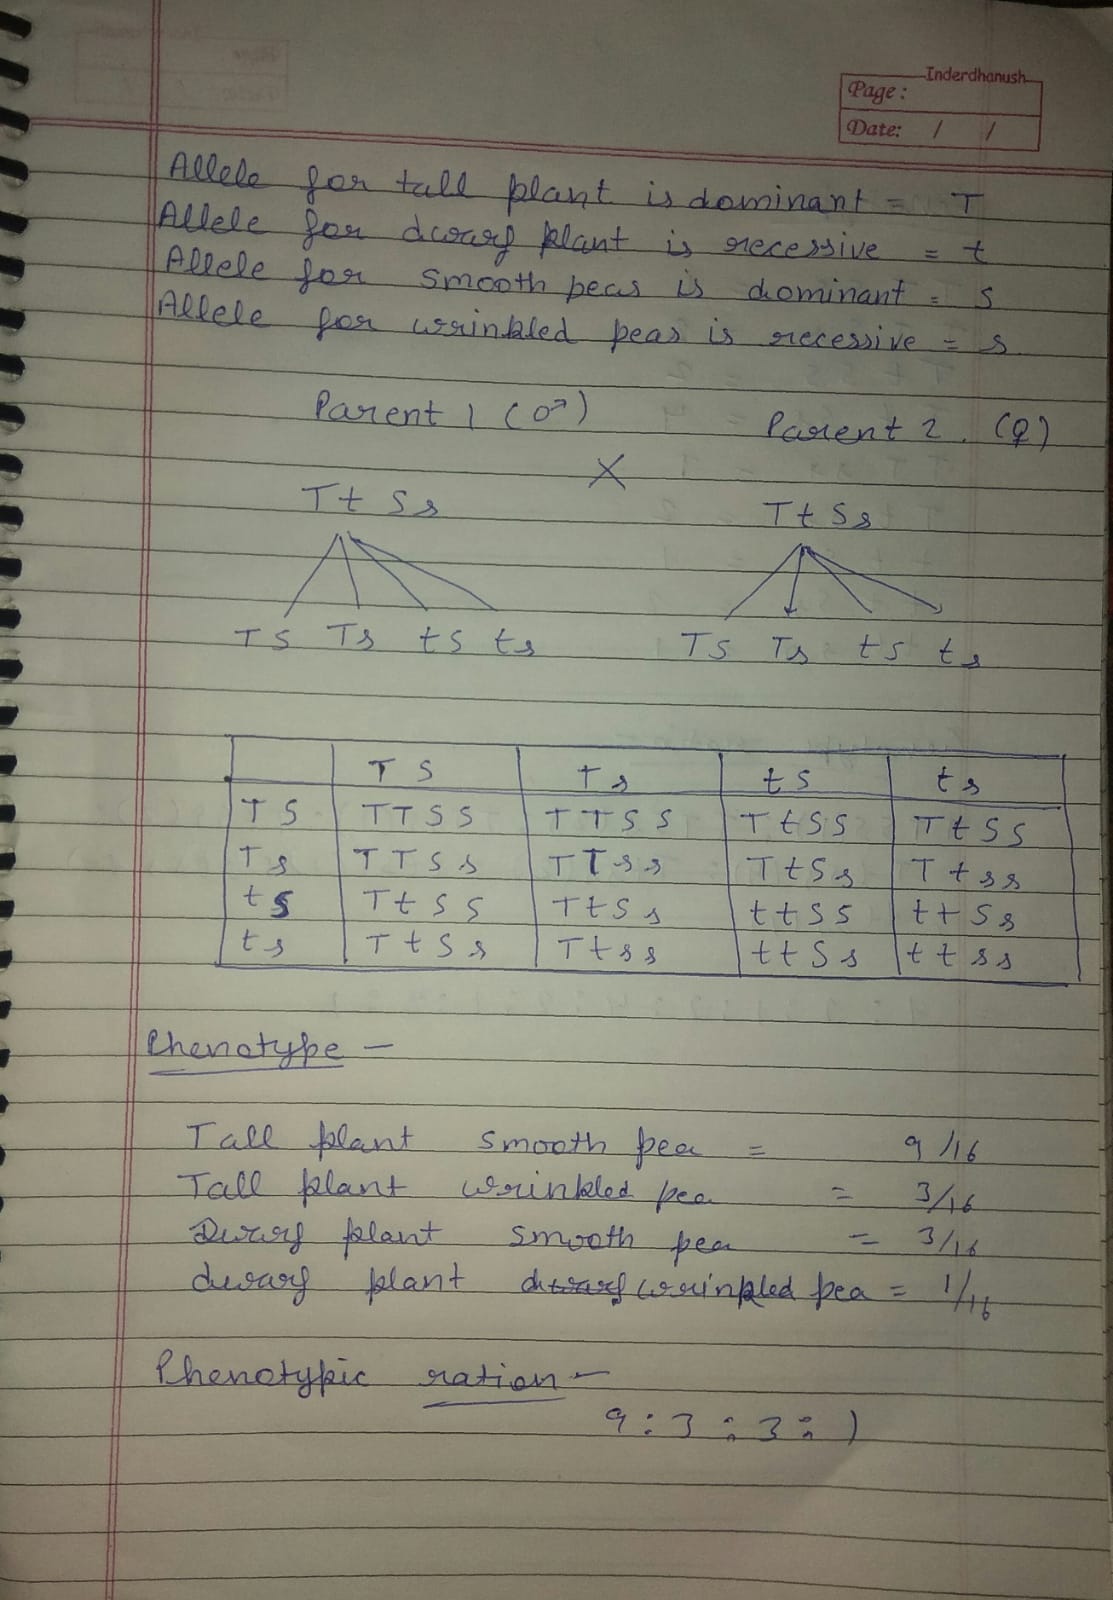 Inderdhanush
Page:
Date: / /
Allele for tall plant is dominant = T
Allele for dwarf plant is recessive = t
Allele for smooth peas is dominant = S
Allele for wrinkled peas is recessive = s
Parent 1 (♂) Parent 2. (♀)
×
TtSs TtSs
TS Ts tS ts TS Ts tS ts
TS Ts tS ts
TS TTSS TTSS TtSS TtSS
Ts TTSs TTss TtSs Ttss
tS TtSS TtSs ttSS ttSs
ts TtSs Ttss ttSs ttss
Phenotype -
Tall plant smooth pea = 9/16
Tall plant wrinkled pea = 3/16
Dwarf plant smooth pea = 3/16
dwarf plant dwarf wrinkled pea = 1/16
Phenotypic ration -
9:3:3:1